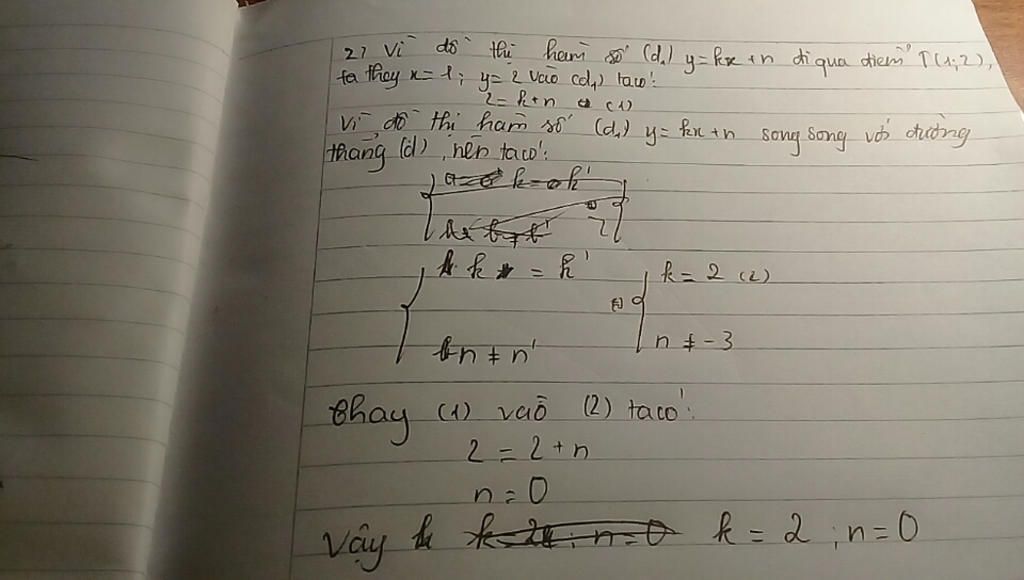 2) Vì đồ thị hàm số (d₁) y=kx+n đi qua điểm T(1;2),
ta thay x=1; y=2 vào (d₁) ta có:
2=k+n (1)
Vì đồ thị hàm số (d₁) y=kx+n song song với đường
thẳng (d), nên ta có:
k=k'
k = k' k=2 (2)
n ≠ n' n ≠ -3
Thay (1) vào (2) ta có:
2=2+n
n=0
Vậy k=2; n=0